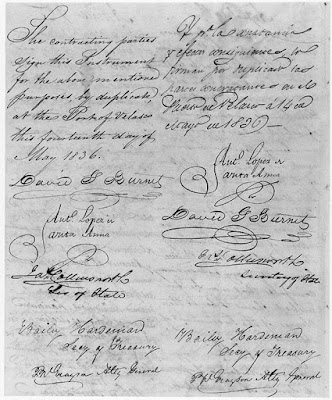 The contracting parties
sign this Instrument
for the above mentioned
purposes, by duplicate,
at the Port of Velasco
this fourteenth day of
May 1836.
David G Burnet
Ant. Lopez de
Santa Anna
Jas Collinsworth
Sec of State
Bailey Hardeman
Secy of Treasury
P W Grayson Atty General
Y pr la constancia
y efectos consiguientes, lo
firman por duplicado las
partes contratantes en el
Puerto de Velasco a 14 de
Mayo de 1836
Ant. Lopez de
Santa Anna
David G Burnet
Jas Collinsworth
Secretary of State
Bailey Hardeman
Secy of Treasury
P W Grayson Atty General